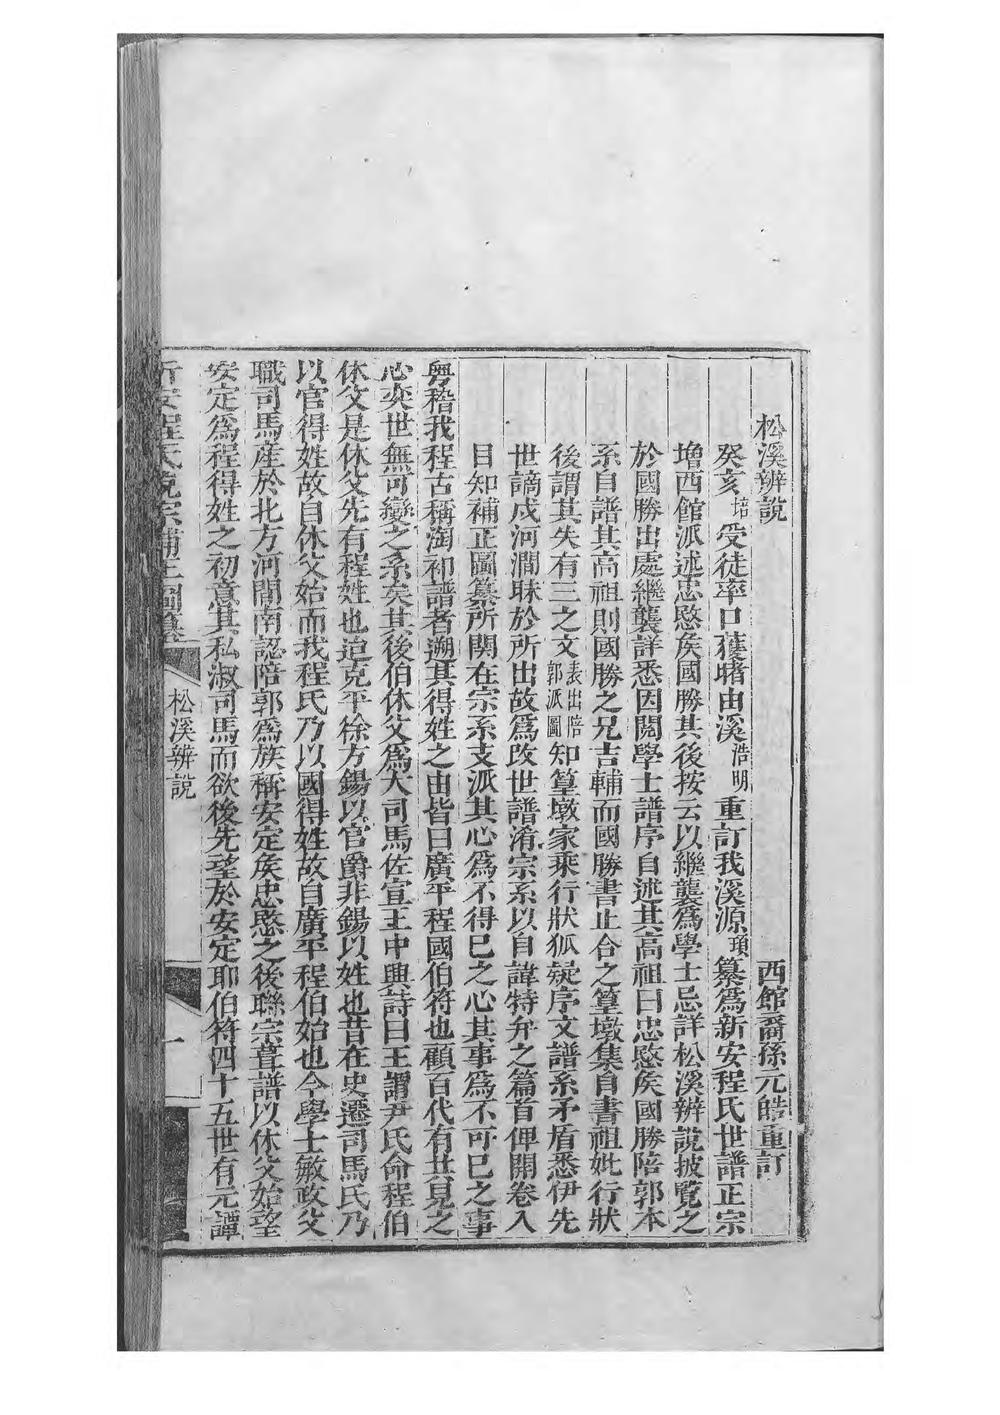 松溪辨說　西館裔孫元皓重訂
癸亥培受徒率口獲睹由溪浩明重訂我溪源頊纂爲新安程氏世譜正宗
增西館派述忠愍侯國勝其後按云以繼襲爲學士忌詳松溪辨說披覽之
於國勝出處繼襲詳悉因閱學士譜序自述其高祖曰忠愍侯國勝陪郭本
系自譜其高祖則國勝之兄吉輔而國勝書止合之篁墩集自書祖妣行狀
後謂其失有三之文表出陪郭派圖知篁墩家乘行狀狐疑序文譜系矛盾悉伊先
世謫戍河澗昧於所出故爲改世譜淆宗系以自諱特弁之篇首俾開卷入
目知補正圖纂所関在宗系支派其心爲不得已之心其事爲不可已之事
粵稽我程古稱淘初譜者遡其得姓之由皆曰廣平程國伯符也顧百代有共見之
心奕世無可變之系矣其後伯休父爲大司馬佐宣王中興詩曰王謂尹氏命程伯
休父是休父先有程姓也迨克平徐方錫以官爵非錫以姓也昔在史遷司馬氏乃
以官得姓故自休父始而我程氏乃以國得姓故自廣平程伯始也今學士敏政父
職司馬產於北方河間南認陪郭爲族稱安定侯忠愍之後聯宗葺譜以休父始望
安定爲程得姓之初意其私淑司馬而欲後先望於安定耶伯符四十五世有元譚
新安程氏統宗補正圖纂　松溪辨說　一